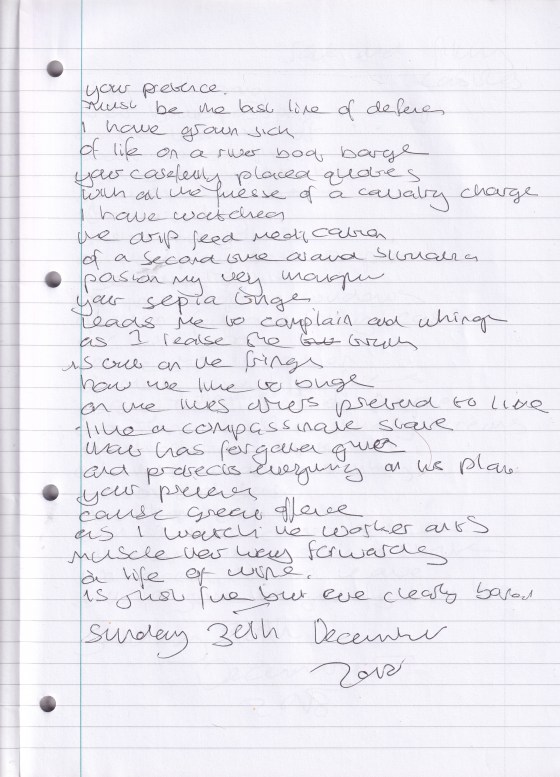 your pretence.
must be the last line of defence
I have grown sick
of life on a river boat barge
your carefully placed quotes
with all the finesse of a cavalry charge
I have watched
the drip feed medication
of a second time around situation
poison my very
your sepia tinge
leads me to complain and whinge
as I realise the truth
is out on the fringe
how we like to binge
on the lives others pretend to live
like a compassionate
that has forgotten
and protects everything on his
your pretence
cause great offence
as I watch the worker ants
muscle their way forwards
a life of
is just fine but
Sunday 30th December
2012